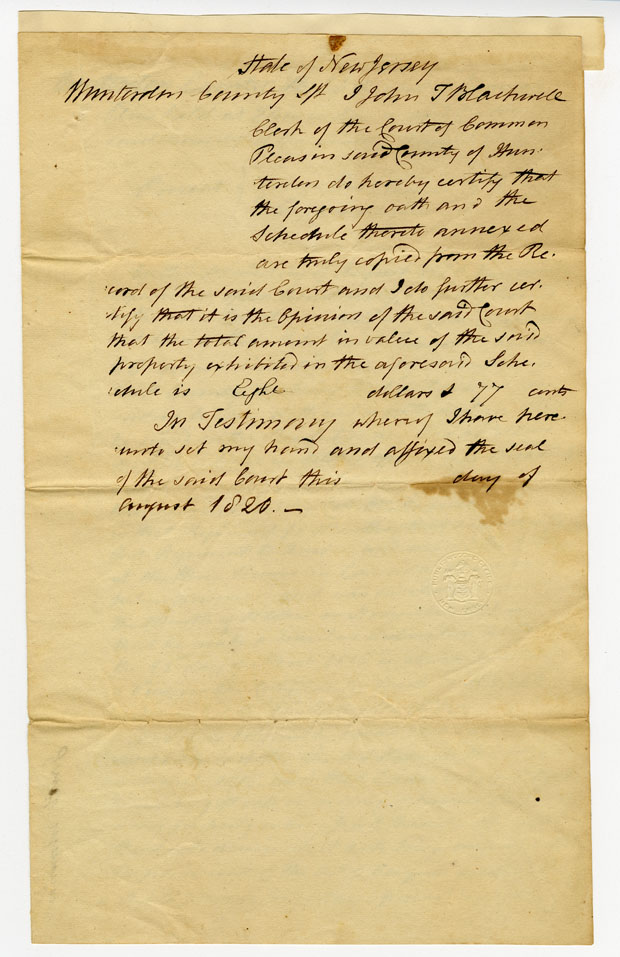 State of New Jersey
Hunterdon County Ss I John T Blackwell
Clerk of the Court of Common
Pleas in said County of Hun-
terdon do hereby certify that
the foregoing oath and the
Schedule thereto annexed
are truly copied from the Re-
cord of the said Court and I do further cer-
tify that it is the Opinion of the said Court
that the total amount in value of the said
property exhibited in the aforesaid Sche-
dule is Eight dollars & 77 cents
In Testimony whereof I have here-
unto set my hand and affixed the seal
of the said Court this day of
August 1820. —